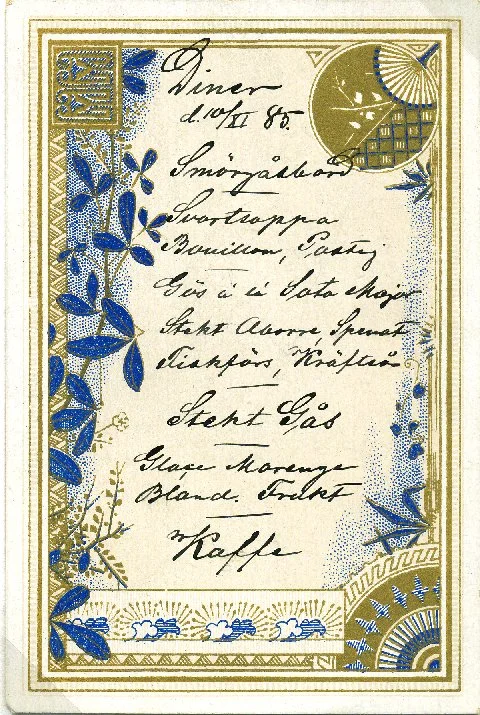 Diner
d. 10/XI 85.
Smörgåsbord
Svartsoppa
Bouillon, Pastej
Gös à la Sota Major
Stekt Aborre, Spenat
Fiskfärs, Kräftsås
Stekt Gås
Glaçe Marenge
Bland. Frukt
Kaffe